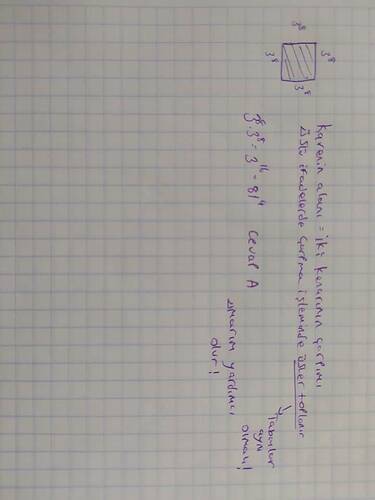 3⁸
3⁸
3⁸
3⁸
Karenin alanı = iki kenarının çarpımı
Üslü ifadelerde çarpma işleminde üsler toplanır
Tabanlar
aynı
olmalı!
3⁸.3⁸ = 3¹⁶ = 81⁴ Cevap A
Umarım yardımcı
olur!